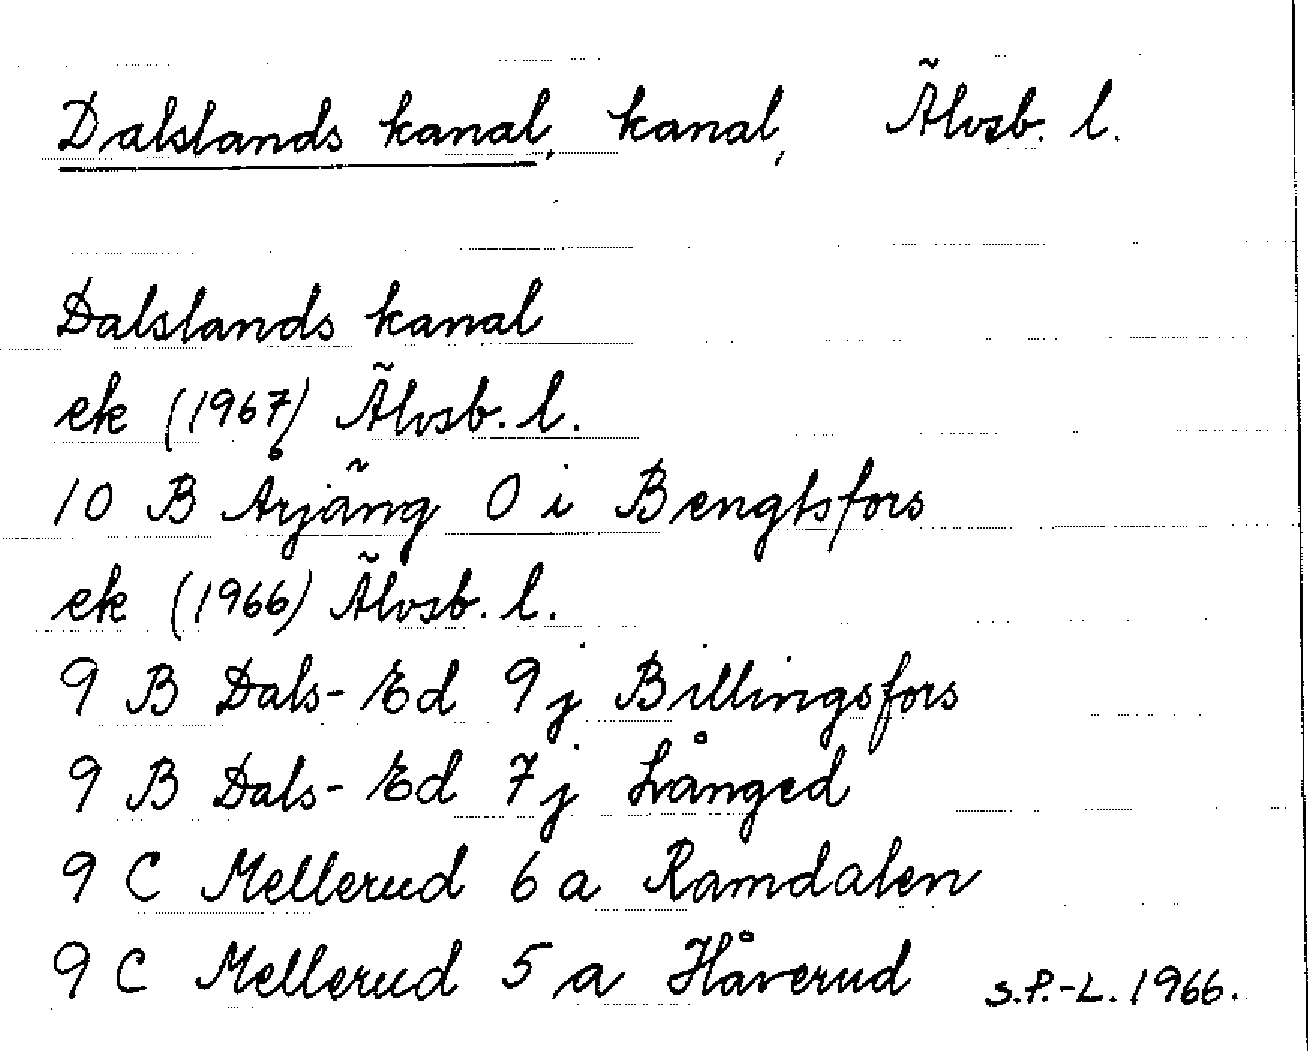 Dalslands kanal, kanal, Älvsb. l.
Dalslands kanal
ek (1967) Älvsb. l.
10 B Årjäng 0 i Bengtsfors
ek (1966) Älvsb. l.
9 B Dals-Ed 9 j Billingsfors
9 B Dals-Ed 7 j Långed
9 C Mellerud 6 a Ramdalen
9 C Mellerud 5 a Håverud s.P.-L. 1966.